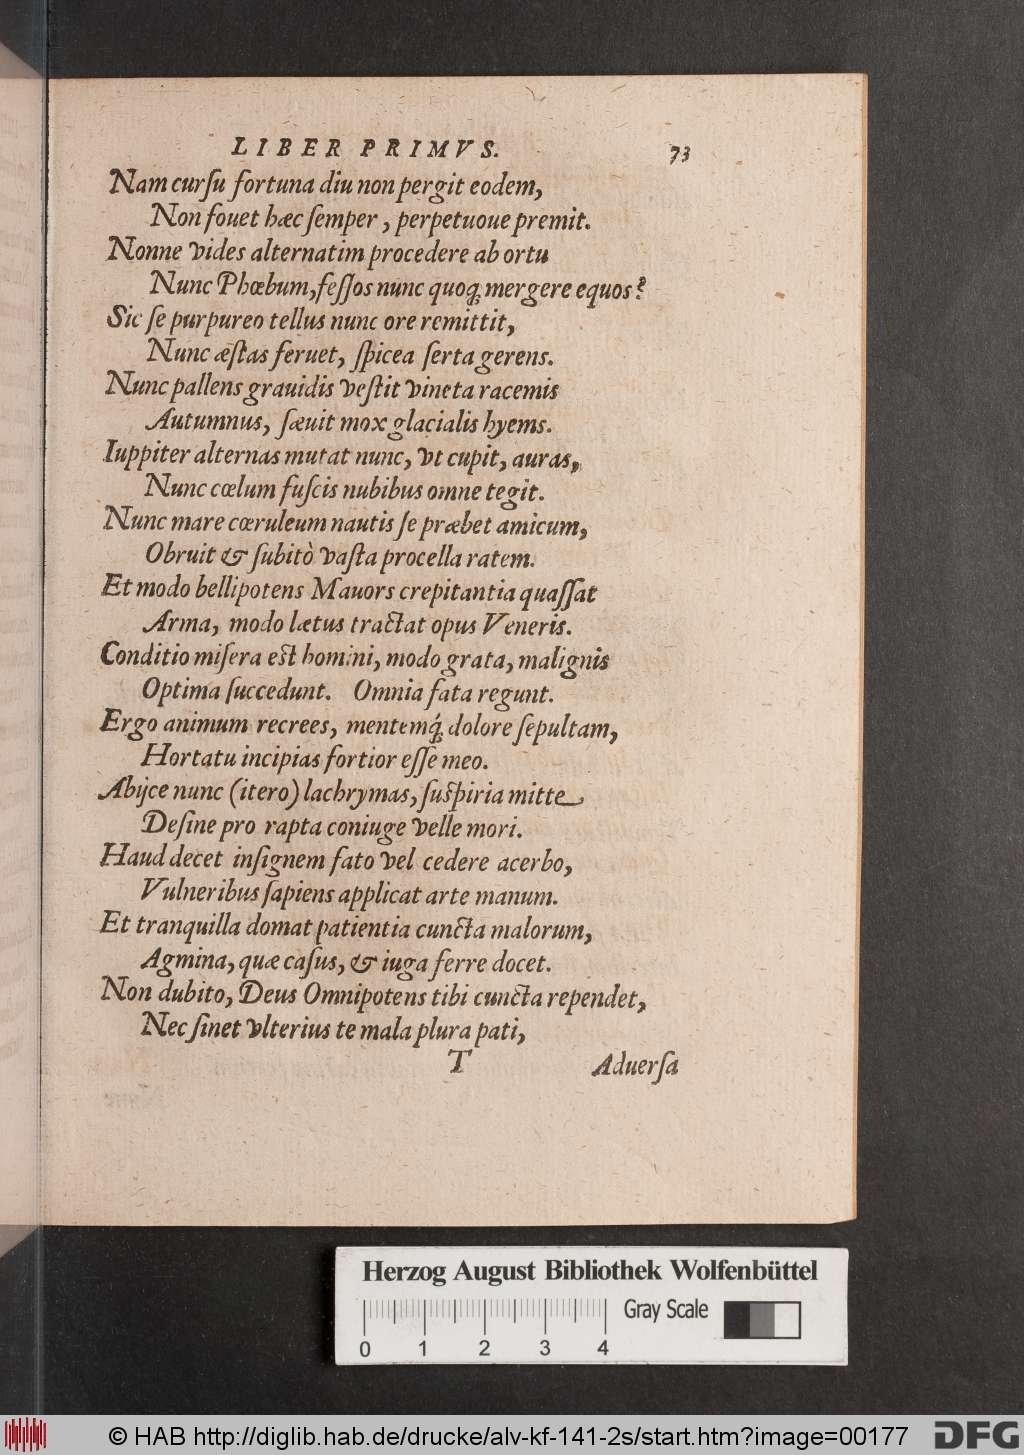 LIBER PRIMVS. 73
Nam curſu fortuna diu non pergit eodem,
Non fouet hæc ſemper, perpetuoue premit.
Nonne vides alternatim procedere ab ortu
Nunc Phœbum, feſſos nunc quoq; mergere equos?
Sic ſe purpureo tellus nunc ore remittit,
Nunc æſtas feruet, ſpicea ſerta gerens.
Nunc pallens grauidis veſtit vineta racemis
Autumnus, ſæuit mox glacialis hyems.
Iuppiter alternas mutat nunc, vt cupit, auras,
Nunc cœlum fuſcis nubibus omne tegit.
Nunc mare cœruleum nautis ſe præbet amicum,
Obruit & ſubitò vaſta procella ratem.
Et modo bellipotens Mauors crepitantia quaſſat
Arma, modo lætus tractat opus Veneris.
Conditio miſera eſt homini, modo grata, malignis
Optima ſuccedunt. Omnia fata regunt.
Ergo animum recrees, mentemq́; dolore ſepultam,
Hortatu incipias fortior eſſe meo.
Abijce nunc (itero) lachrymas, ſuſpiria mitte
Deſine pro rapta coniuge velle mori.
Haud decet inſignem fato vel cedere acerbo,
Vulneribus ſapiens applicat arte manum.
Et tranquilla domat patientia cuncta malorum,
Agmina, quæ caſus, & iuga ferre docet.
Non dubito, Deus Omnipotens tibi cuncta rependet,
Nec ſinet vlterius te mala plura pati,
T Aduerſa
Herzog August Bibliothek Wolfenbüttel
Gray Scale
0 1 2 3 4
© HAB http://diglib.hab.de/drucke/alv-kf-141-2s/start.htm?image=00177
DFG